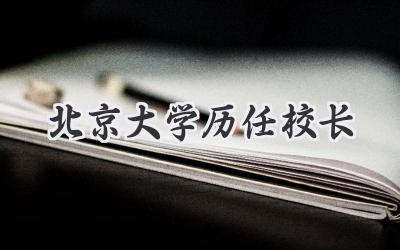 北京大学历任校长